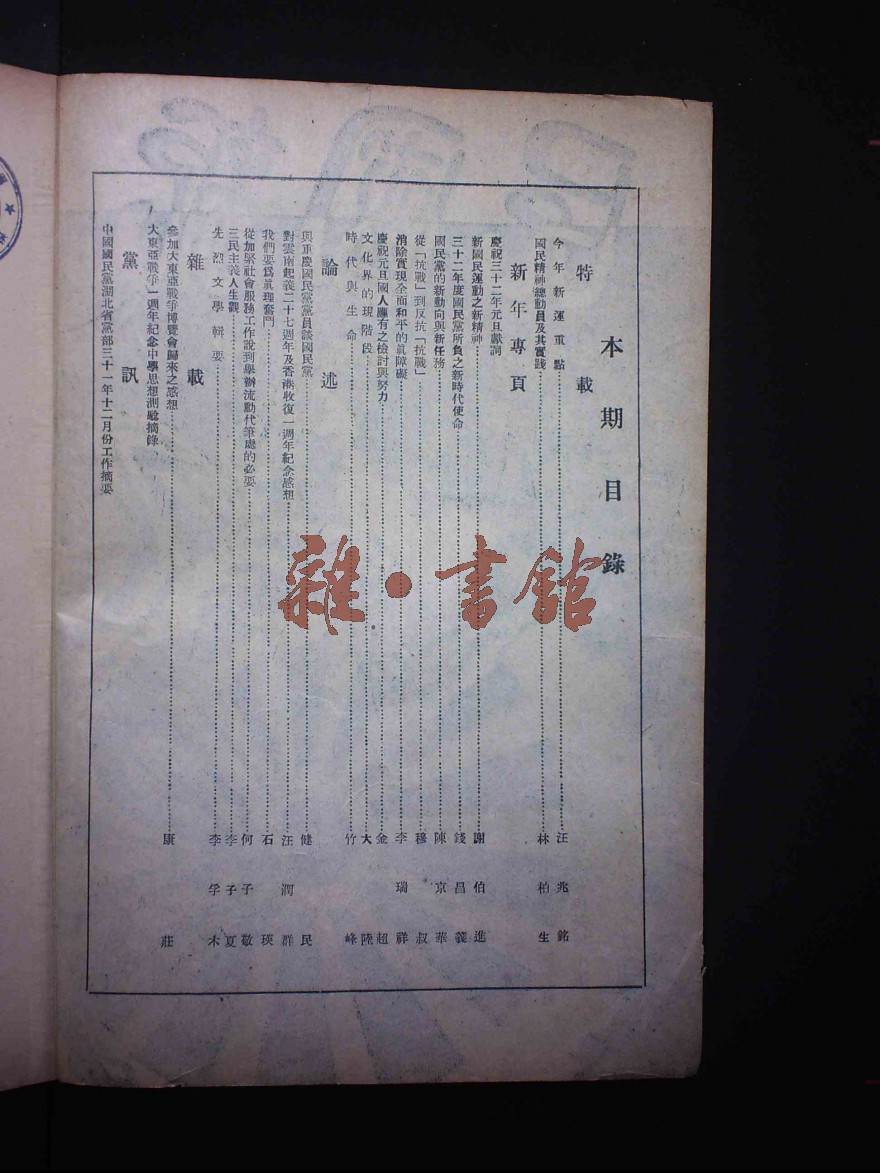 本期目錄
特載
今年新運重點……汪兆銘
國民精神總動員及其實踐……林柏生
新年專頁
慶祝三十二年元旦獻詞
新國民運動之新精神……謝伯進
三十二年度國民黨所負之新時代使命……錢昌義
國民黨的新動向與新任務……陳京華
從「抗戰」到反抗「抗戰」……穆叔
消除實現全面和平的眞障礙……李瑞祥
慶祝元旦國人應有之檢討與努力……金超
文化界的現階段……大陸
時代與生命……竹峰
論述
與重慶國民黨黨員談國民黨……健民
對雲南起義二十七週年及香港收復一週年紀念感想……汪潤群
我們要爲眞理奮鬥……石瑛
從加緊社會服務工作說到舉辦流動代筆處的必要……何子敬
三民主義人生觀……李子夏
先烈文學輯要……李孚木
雜載
參加大東亞戰爭博覽會歸來之感想……康莊
大東亞戰爭一週年紀念中學思想測驗摘錄
黨訊
中國國民黨湖北省黨部三十一年十二月份工作摘要
雜·書館